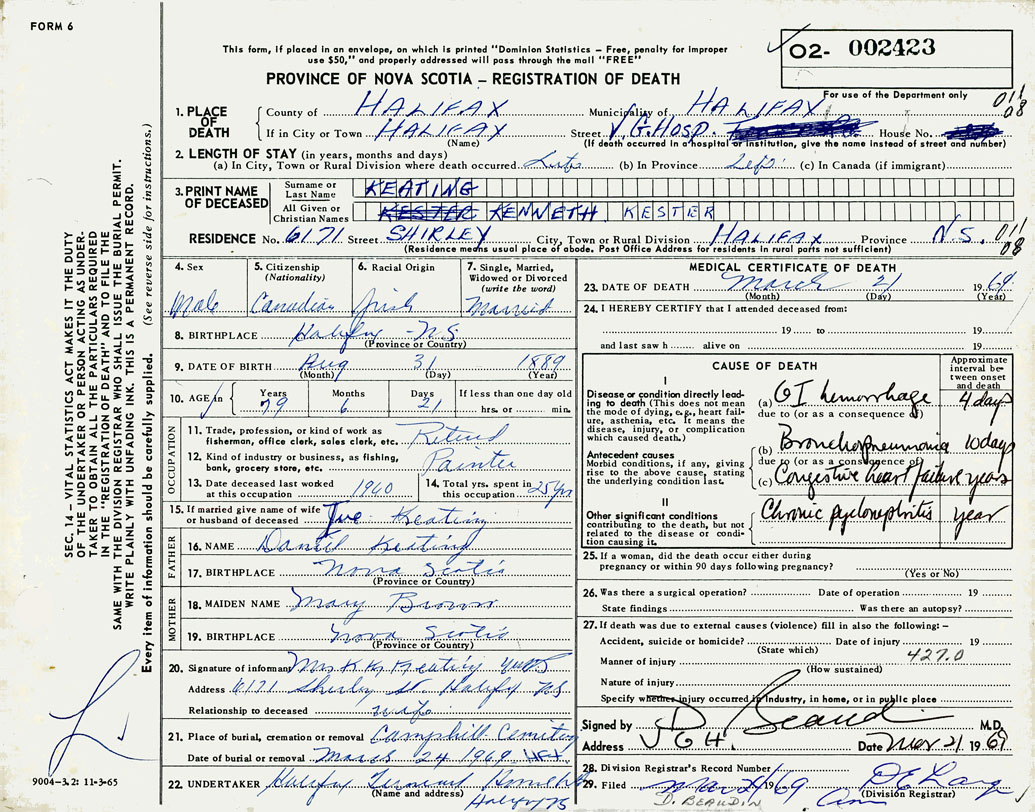 FORM 6
This form, if placed in an envelope, on which is printed "Dominion Statistics – Free, penalty for improper
use $50," and properly addressed will pass through the mail "FREE"
O2- 002423
PROVINCE OF NOVA SCOTIA – REGISTRATION OF DEATH
For use of the Department only
011
08
1. PLACE OF DEATH
County of HALIFAX Municipality of HALIFAX
If in City or Town HALIFAX Street V.G. HOSP. House No.
(Name) (If death occurred in a hospital or institution, give the name instead of street and number)
2. LENGTH OF STAY (in years, months and days)
(a) In City, Town or Rural Division where death occurred Life (b) In Province Life (c) In Canada (if immigrant)
3. PRINT NAME OF DECEASED
Surname or Last Name KEATING
All Given or Christian Names KESTER KENNETH KESTER
RESIDENCE No. 6171 Street SHIRLEY City, Town or Rural Division HALIFAX Province N.S. 011
(Residence means usual place of abode. Post Office Address for residents in rural parts not sufficient) 08
SEC. 14 – VITAL STATISTICS ACT MAKES IT THE DUTY
OF THE UNDERTAKER OR PERSON ACTING AS UNDER-
TAKER TO OBTAIN ALL THE PARTICULARS REQUIRED
IN THE "REGISTRATION OF DEATH" AND TO FILE THE
SAME WITH THE DIVISION REGISTRAR WHO SHALL ISSUE THE BURIAL PERMIT.
WRITE PLAINLY WITH UNFADING INK. THIS IS A PERMANENT RECORD.
Every item of information should be carefully supplied. (See reverse side for instructions.)
4. Sex Male
5. Citizenship (Nationality) Canadian
6. Racial Origin Irish
7. Single, Married, Widowed or Divorced (write the word) Married
8. BIRTHPLACE Halifax N.S.
(Province or Country)
9. DATE OF BIRTH Aug 31 1889
(Month) (Day) (Year)
10. AGE in Years 79 Months 6 Days 21 If less than one day old
hrs. or min.
OCCUPATION
11. Trade, profession, or kind of work as
fisherman, office clerk, sales clerk, etc. Retired
12. Kind of industry or business, as fishing,
bank, grocery store, etc. Painter
13. Date deceased last worked
at this occupation 1960
14. Total yrs. spent in
this occupation 25 yrs
15. If married give name of wife
or husband of deceased Keating
FATHER
16. NAME Daniel Keating
17. BIRTHPLACE Nova Scotia
(Province or Country)
MOTHER
18. MAIDEN NAME Mary Brown
19. BIRTHPLACE Nova Scotia
(Province or Country)
20. Signature of informant Mrs K K Keating
Address 6171 Shirley St. Halifax NS
Relationship to deceased wife
21. Place of burial, cremation or removal Camphill Cemetery
Date of burial or removal March 24 1969
22. UNDERTAKER Halifax Funeral Home
(Name and address) Halifax NS
9004-3.2: 11-3-65
MEDICAL CERTIFICATE OF DEATH
23. DATE OF DEATH March 21 1969
(Month) (Day) (Year)
24. I HEREBY CERTIFY that I attended deceased from:
19 to 19
and last saw h alive on 19
CAUSE OF DEATH
Approximate interval between onset and death
I
Disease or condition directly leading to death (This does not mean the mode of dying, e.g., heart failure, asthenia, etc. It means the disease, injury, or complication which caused death.)
(a) GI hemorrhage 4 days
due to (or as a consequence of)
(b) Bronchopneumonia 10 days
Antecedent causes
Morbid conditions, if any, giving rise to the above cause, stating the underlying condition last.
due to (or as a consequence of)
(c) Congestive heart failure years
II
Other significant conditions
contributing to the death, but not related to the disease or condition causing it.
Chronic pyelonephritis year
25. If a woman, did the death occur either during
pregnancy or within 90 days following pregnancy?
(Yes or No)
26. Was there a surgical operation? Date of operation 19
State findings Was there an autopsy?
27. If death was due to external causes (violence) fill in also the following:–
Accident, suicide or homicide? Date of injury 19
(State which)
Manner of injury 427.0
(How sustained)
Nature of injury
Specify whether injury occurred in industry, in home, or in public place
Signed by D Beaudin M.D.
Address VGH. Date Mar 21 1969
28. Division Registrar's Record Number
29. Filed Mar 1969 D E Lang
(Division Registrar)
D. BEAUDIN